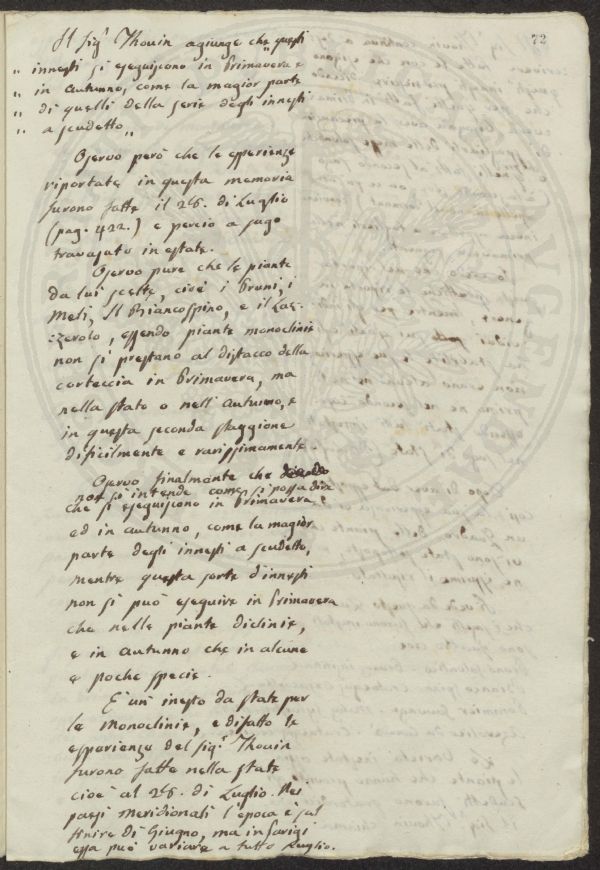 72
Il Sig.r Thouin agiunge che „questi
„ innesti si eseguiscono in Primavera e
„ in autunno, come la magior parte
„ di quelli della serie degli innesti
„ a scudetto„
Osservo però che le esperienze
riportate in questa memoria
furono fatte il 26. di Luglio
(pag. 422.) e perciò a sugo
travasato in estate.
Osservo pure che le piante
da lui scelte, cioè i Pruni, i
Meli, il Biancospino, e il Laz-
:zerolo, essendo piante monoclinie
non si prestano al distacco della
corteccia in Primavera, ma
nella state o nell'autunno, e
in questa seconda staggione
dificilmente e rarissimamente.
Osservo finalmente che
non s'intende come si possa dire
che si eseguiscono in Primavera,
ed in autunno, come la magior
parte degli innesti a scudetto,
mentre questa sorte d'innesti
non si può eseguire in Primavera
che nelle piante diclinie,
e in autunno che in alcune
e poche specie.
È un inesto da state per
le Monoclinie, e difatto le
esperienze del Sig.r Thouin
furono fatte nella state
cioè al 26. di Luglio. Nei
paesi meridionali l'epoca è sul
finire di Giugno, ma in Parigi
essa può variare a tutto Luglio.